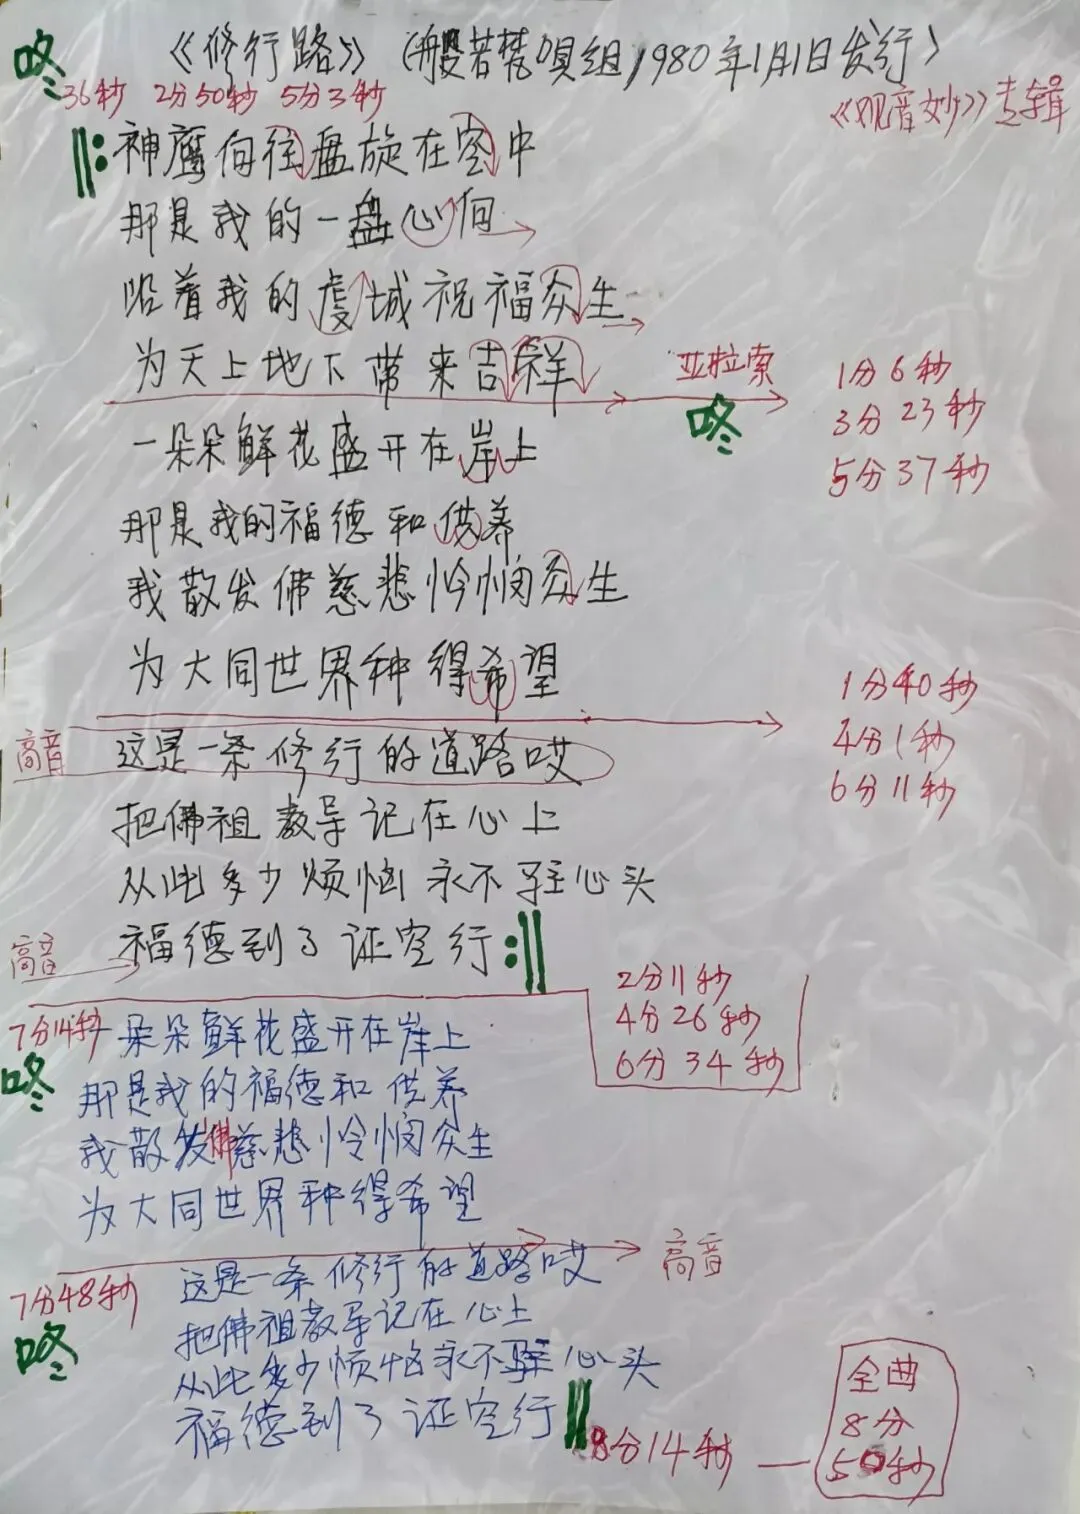 咚 《修行路》(般若梵唄组,1980年1月1日发行)
36秒 2分50秒 5分3秒
《观音妙》专辑
神鹰向往盘旋在空中
那是我的一盘心向
沿着我的虔城祝福众生
为天上地下带来吉祥
亚拉索
咚
1分6秒
3分23秒
5分37秒
一朵朵鲜花盛开在岸上
那是我的福德和供养
我散发佛慈悲怜悯众生
为大同世界种得希望
1分40秒
4分1秒
6分11秒
高音 这是一条修行的道路哎
把佛祖教导记在心上
从此多少烦恼永不驻心头
高音 福德到了证空行
2分11秒
4分26秒
6分34秒
7分14秒 一朵朵鲜花盛开在岸上
咚 那是我的福德和供养
我散发佛慈悲怜悯众生
为大同世界种得希望
高音
7分48秒 这是一条修行的道路哎
咚 把佛祖教导记在心上
从此多少烦恼永不驻心头
福德到了证空行
8分14秒 —
全曲
8分
50秒